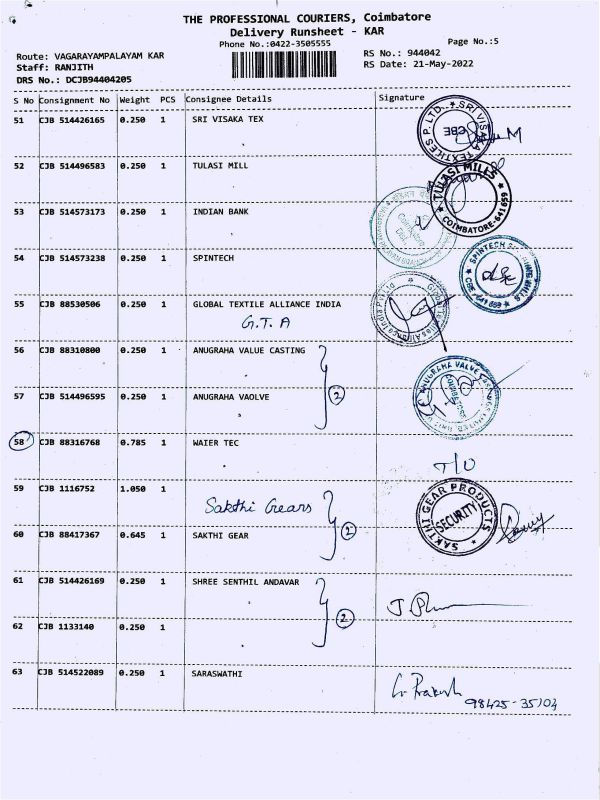 THE PROFESSIONAL COURIERS, Coimbatore
Delivery Runsheet - KAR
Phone No.:0422-3505555
Page No.:5
Route: VAGARAYAMPALAYAM KAR
RS No.: 944042
Staff: RANJITH
RS Date: 21-May-2022
DRS No.: DCJB94404205
S No Consignment No Weight PCS Consignee Details Signature
51 CJB 514426165 0.250 1 SRI VISAKA TEX
SRI VISAKA TEXTILES P. LTD. CBE
52 CJB 514496583 0.250 1 TULASI MILL
TULASI MILLS COIMBATORE-641659
53 CJB 514573173 0.250 1 INDIAN BANK
54 CJB 514573238 0.250 1 SPINTECH
SPINTECH
55 CJB 88530506 0.250 1 GLOBAL TEXTILE ALLIANCE INDIA
G.T.A
56 CJB 88310800 0.250 1 ANUGRAHA VALUE CASTING
2
57 CJB 514496595 0.250 1 ANUGRAHA VAOLVE
ANUGRAHA VALVE
58 CJB 88316768 0.785 1 WAIER TEC
T/O
59 CJB 1116752 1.050 1
Sakthi Gears
SAKTHI GEAR PRODUCTS SECURITY
2
60 CJB 88417367 0.645 1 SAKTHI GEAR
61 CJB 514426169 0.250 1 SHREE SENTHIL ANDAVAR
2
62 CJB 1133140 0.250 1
63 CJB 514522089 0.250 1 SARASWATHI
98425-35104